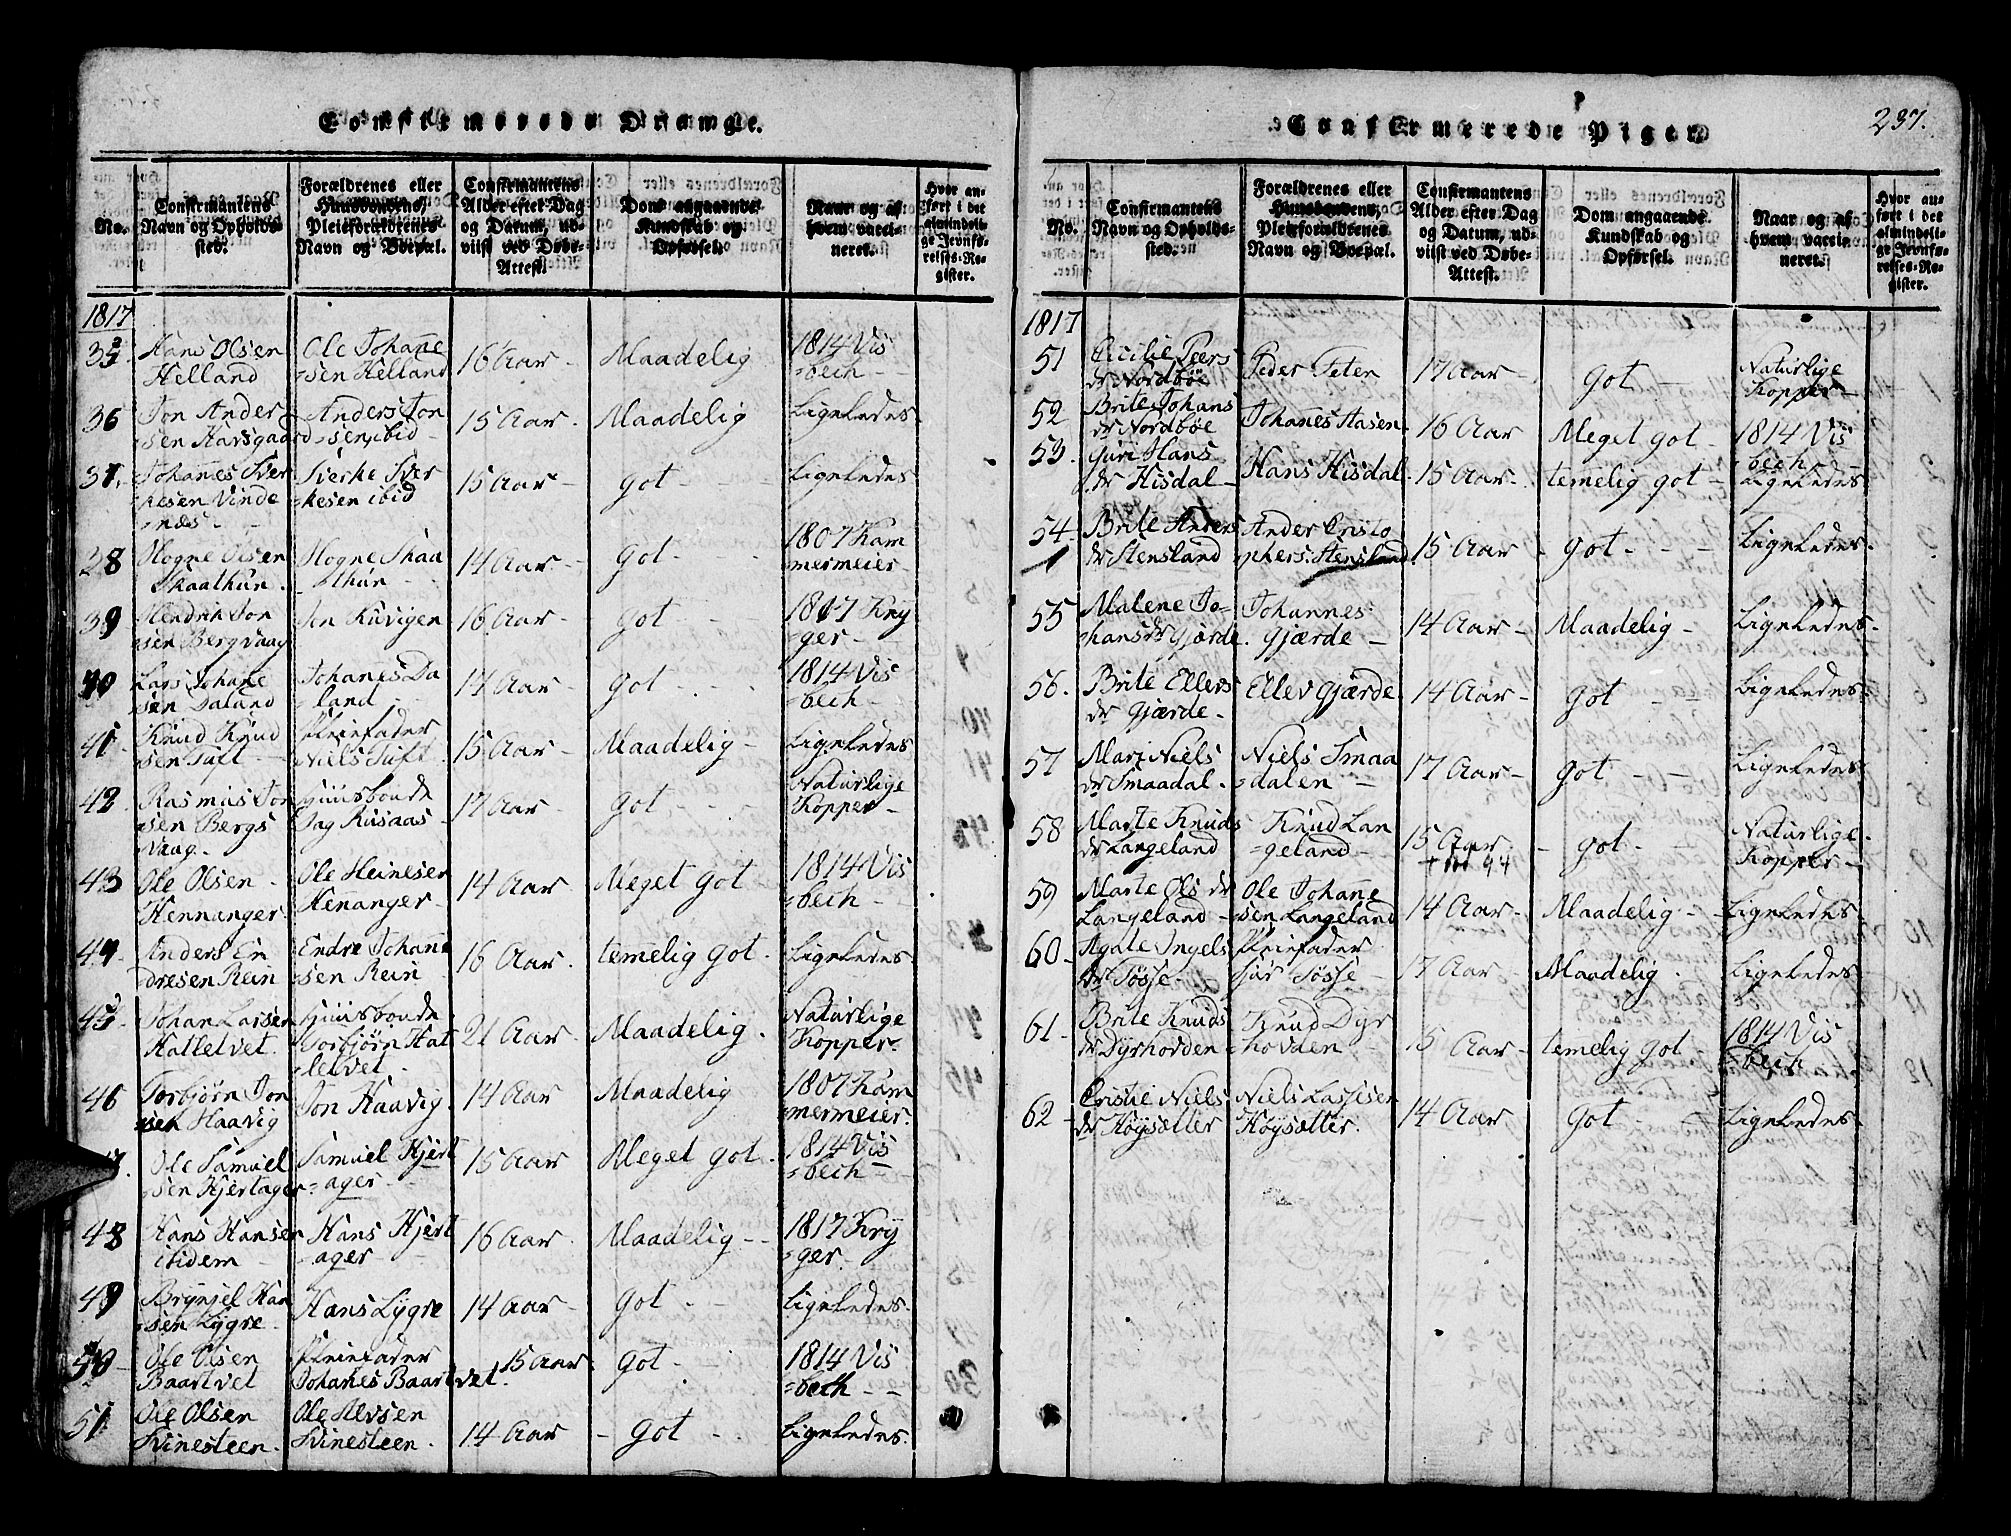 Confirmerede Drænge.
No.
Confirmantens
Navn og Opholds-
sted.
Forældrenes eller
Huusbondens,
Pleieforældrenes
Navn og Boepæl.
Confirmantens
Alder efter Dag
og Datum, ud-
viist ved Døbe-
Attest.
Dom angaaende
Kundskab og
Opførsel.
Naar og af
hvem vacci-
neret.
Hvor an-
ført i det
almindeli-
ge Jevnfø-
relses-Re-
gister.
1817
35. Hans Olsen Helland | Ole Johane =sen Helland | 16 Aar - | Maadelig | 1814 Vis =bech -
36 Jon Ander =sen Aarsgaard | Anders Jon =sen ibid - | 15 Aar. | Maadelig | Ligeledes.
37. Johanes Sver =kesen Vinde =næs - | Sverke Sver =kesen ibid | 15 Aar - | got - | Ligeledes
38 Mogne Olsen Skaathun. | Mogne Skaa =thun - | 14 Aar - | got - | 1807 Kam mermeier.
39 Hendrik Jon =sen Bergvaag | Jon Kuvigen | 16 Aar - | got - | 1817 Kry =ger -
40 Lars Johane =sen Daland | Johanes Da =land - | 17 Aar - | got - | 1814 Vis =bech -
41. Knud Knud =sen Tuft - | Pleiefader Niels Tuft. | 15 Aar - | Maadelig - | Ligeledes
42. Rasmus Jon =sen Bergs Vaag. | Huusbonde Dag Rusaas - | 17 Aar - | got - | Naturlige Kopper -
43 Ole Olsen - Hennanger. | Ole Heinesen Henanger - | 14 Aar - | Meget got | 1814 Vis =bech -
44. Anders En =dresen Rein | Endre Johane =sen Rein | 16 Aar. | temelig got. | Ligeledes.
45. Johan Larsen Hatletvet. | Huusbonde Torbjørn Hat =letvet - | 21 Aar - | Maadelig. | Naturlige Kopper.
46 Torbjørn Jon =sen Haavig | Jon Haavig. | 14 Aar | Maadelig | 1807 Kam mermeier.
Ole Samuel =sen Hjertager | Samuel Hjert =ager - | 15 Aar | Meget got. | 1814 Vis =bech -
48 Hans Hansen ibidem - | Hans Hjert =ager - | 16 Aar. | Maadelig - | 1817 Kry =ger.
49 Brynjel Han =sen Lygre. | Hans Lygre | 14 Aar - | got. - | Ligeledes.
50 - Ole Olsen Baartvet | Pleiefader Johanes Baartvet. | 15 Aar. | got. - | 1814 Vis =bech -
51 Ole Olsen Svinesteen. | Ole Alvsen Svinesteen. | 14 Aar | - got - | Ligeledes.
Confirmerede Piger
237.
No.
Confirmantens
Navn og Opholds-
sted.
Forældrenes eller
Huusbondens,
Pleieforældrenes
Navn og Boepæl.
Confirmantens
Alder efter Dag
og Datum, ud-
viist ved Døbe-
Attest.
Dom angaaende
Kundskab og
Opførsel.
Naar og af
hvem vacci-
neret.
Hvor an-
ført i det
almindeli-
ge Jevnfø-
relses-Re-
gister.
1817
51 Cicilie Peers dr Nordbøe | Peder Teten | 17 Aar - | got - | Naturlige Kopper -
52 Brite Johans dr Nordbøe | Johanes Aasen. | 16 Aar | Meget got - | 1814 Vis =bech
53. Guri Hans dr Hisdal - | Hans Hisdal. | 15 Aar - | temelig got - | Ligeledes
54. Brite Anders dr Stensland | Ander Cristo phers. Stensland. | 15 Aar | - got - | Ligeledes.
55 Malene Jo= =hans dr Gjærde. | Johannes Gjærde - | 14 Aar - | Maadelig - | Ligeledes.
56. Brite Ellers dr Gjærde - | Ellev Gjærde. | 14 Aar - | got - | Ligeledes.
57 Mari Niels dr Smaadal. | Niels Smaa =dalen - | 17 Aar - | got - | Ligeledes.
58 Marte Knuds dr Langeland | Knud Lan =geland - | 15 Aar. | - got - | Naturlige Kopper -
59 Marte Ols dr Langeland - | Ole Johane =sen Langeland | 14 Aar - | Maadelig - | Ligeledes.
60 - Agate Ingels dr Tøsse - | Pleiefader Siur Tøsse - | 17 Aar - | Maadelig. | Ligeledes.
61. Brite Knuds dr Dyrhovden - | Knud Dyr =hovden - | 15 Aar - | temelig got - | 1814 Vis =bech -
62 - Cristie Niels dr Høysætter | Niels Larsen Høysætter. | 14 Aar | got - | Ligeledes.